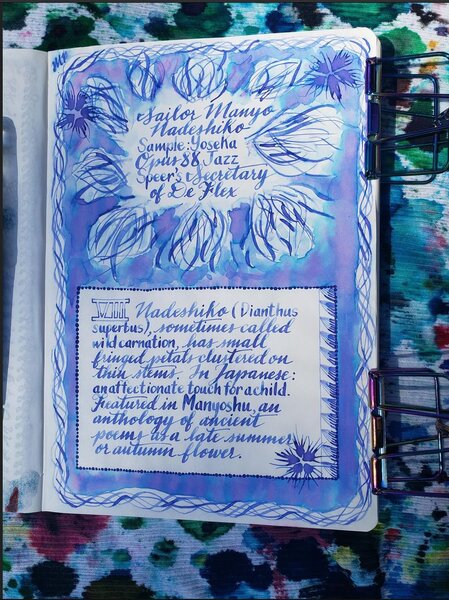 Sailor Manyo
Nadeshiko
Sample: Yoseka
Opus 88 Jazz
Speer's Secretary
of De Flex
VIII Nadeshiko (Dianthus
superbus), sometimes called
wild carnation, has small
fringed petals clustered on
thin stems. In Japanese:
an affectionate touch for a child.
Featured in Manyoshu, an
anthology of ancient
poems as a late summer
or autumn flower.